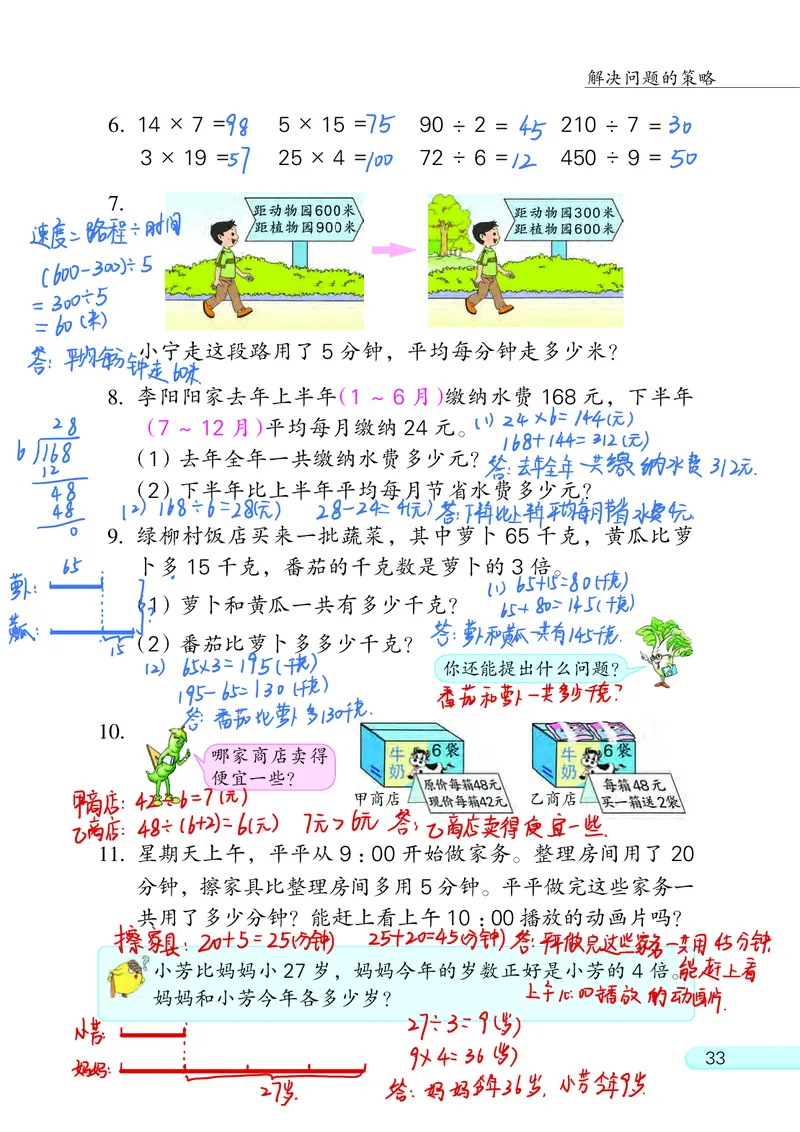 解决问题的策略
6. 14 × 7 =98 5 × 15 =75 90 ÷ 2 = 45 210 ÷ 7 = 30
3 × 19 =57 25 × 4 =100 72 ÷ 6 =12 450 ÷ 9 = 50
7.
距动物园600米
距植物园900米
距动物园300米
距植物园600米
速度=路程÷时间
(600-300)÷5
=300÷5
=60(米)
小宁走这段路用了 5 分钟，平均每分钟走多少米？
答：平均每分钟走60米
8. 李阳阳家去年上半年(1 ~ 6 月)缴纳水费 168 元，下半年
(7 ~ 12 月)平均每月缴纳 24 元。
(1) 24×6=144(元)
168+144=312(元)
(1) 去年全年一共缴纳水费多少元？
答：去年全年一共缴纳水费312元.
(2) 下半年比上半年平均每月节省水费多少元？
(2) 168÷6=28(元) 28-24=4(元) 答：下半年比上半年平均每月节省水费4元
28
6 168
12
48
48
0
9. 绿柳村饭店买来一批蔬菜，其中萝卜 65 千克，黄瓜比萝
卜多 15 千克，番茄的千克数是萝卜的 3 倍。
65
萝卜：
黄瓜：
15
(1) 萝卜和黄瓜一共有多少千克？
(1) 65+15=80(千克)
65+80=145(千克)
答：萝卜和黄瓜一共有145千克.
(2) 番茄比萝卜多多少千克？
(2) 65×3=195(千克)
195-65=130(千克)
答：番茄比萝卜多130千克.
你还能提出什么问题？
番茄和萝卜一共多少千克？
10.
哪家商店卖得
便宜一些？
牛奶
6 袋
原价每箱48元
现价每箱42元
甲商店
牛奶
6 袋
每箱 48 元
买一箱送 2 袋
乙商店
甲商店：42÷6=7(元)
乙商店：48÷(6+2)=6(元) 7元>6元 答：乙商店卖得便宜一些.
11. 星期天上午，平平从 9：00 开始做家务。整理房间用了 20
分钟，擦家具比整理房间多用 5 分钟。平平做完这些家务一
共用了多少分钟？能赶上看上午 10：00 播放的动画片吗？
擦家具：20+5=25(分钟) 25+20=45(分钟) 答：平平做完这些家务一共用45分钟.
能赶上看
上午10:00播放的动画片.
小芳比妈妈小 27 岁，妈妈今年的岁数正好是小芳的 4 倍。
妈妈和小芳今年各多少岁？
小芳：
妈妈：
27岁.
27÷3=9(岁)
9×4=36(岁)
答：妈妈今年36岁，小芳今年9岁.
33